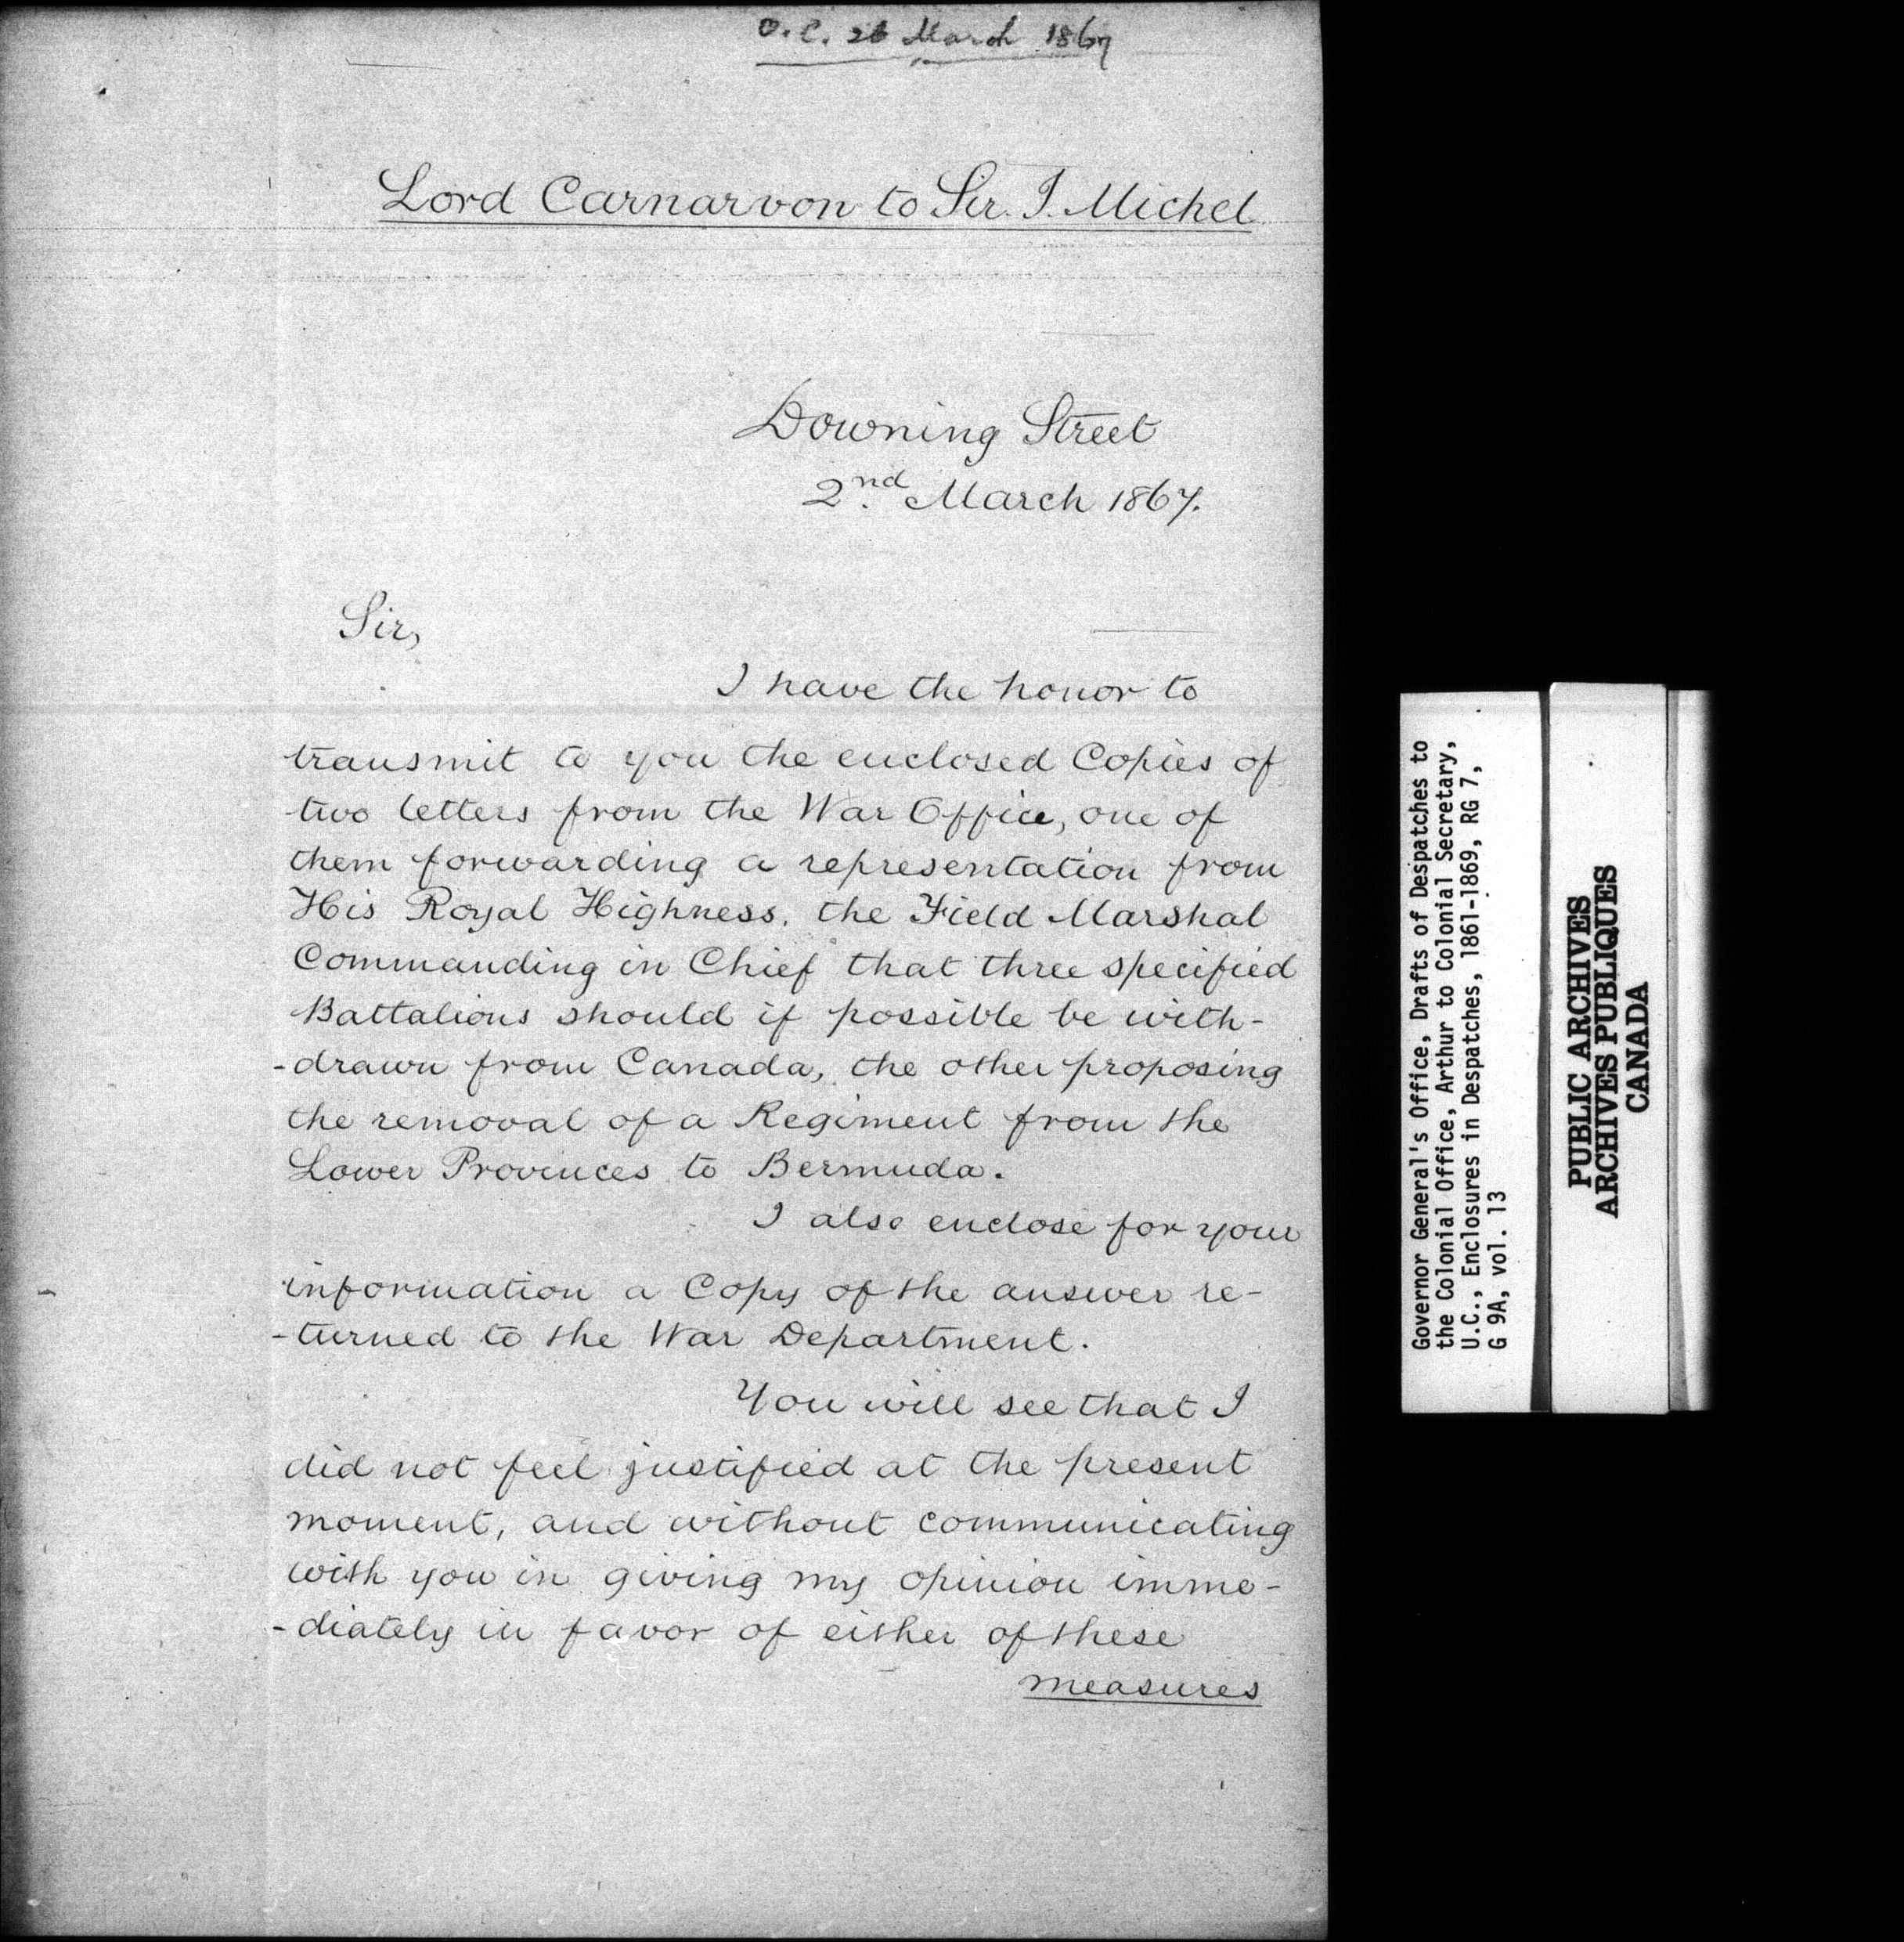 O.C. 26 March 1867
Lord Carnarvon to Sir. J. Michel
Downing Street
2nd March 1867.
Sir,
I have the honor to
transmit to you the enclosed Copies of
two letters from the War Office, one of
them forwarding a representation from
His Royal Highness, the Field Marshal
Commanding in Chief that three specified
Battalions should if possible be with-
-drawn from Canada, the other proposing
the removal of a Regiment from the
Lower Provinces to Bermuda.
I also enclose for your
information a Copy of the answer re-
-turned to the War Department.
You will see that I
did not feel justified at the present
moment, and without communicating
with you in giving my opinion imme-
-diately in favor of either of these
measures
Governor General's Office, Drafts of Despatches to
the Colonial Office, Arthur to Colonial Secretary,
U.C., Enclosures in Despatches, 1861-1869, RG 7,
G 9A, vol. 13
PUBLIC ARCHIVES
ARCHIVES PUBLIQUES
CANADA